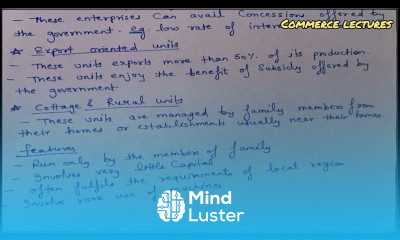 - These enterprises can avail Concessions offered by
the government. Eg. low rate of inter
COMMERCE LECTURES
★ Export oriented units
- These units exports more than 50% of its production.
- These units enjoy the benefit of Subsidy offered by
the government
★ Cottage & Rural units
- These units are managed by family members from
their homes or establishments usually near their homes
features
- Run only by the member of family
- Involves very little Capital
- often fulfils the requirements of local region
- Involve rare use of machines
Mind
Luster